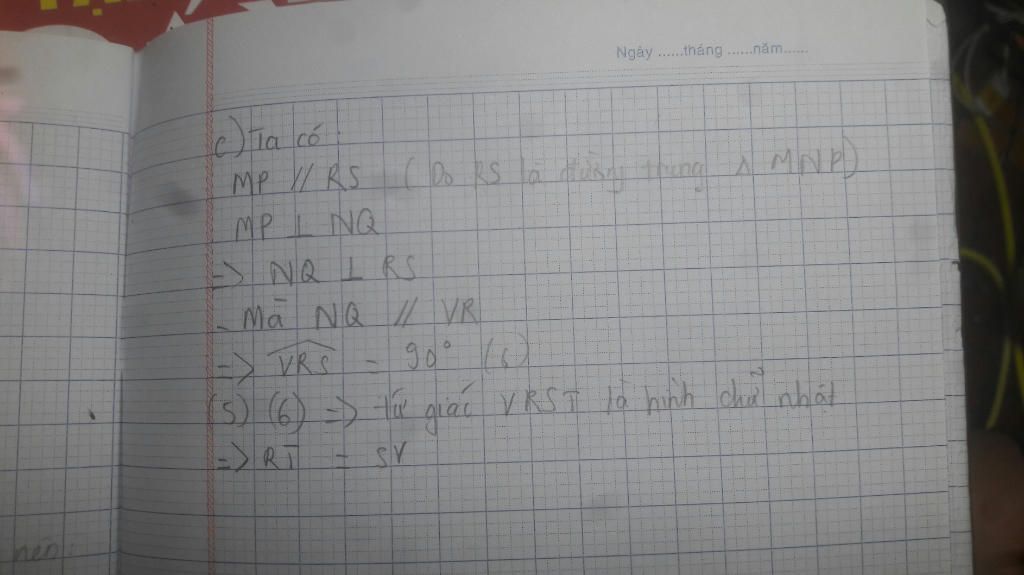 Ngày ......tháng ......năm......
c) Ta có :
MP // RS ( Do RS là đường trung Δ MNP)
MP ⊥ NQ
=> NQ ⊥ RS
- Mà NQ // VR
=> \widehat{VRS} = 90° (6)
(5) (6) => tứ giác VRST là hình chữ nhật
=> RT = SV
nên :